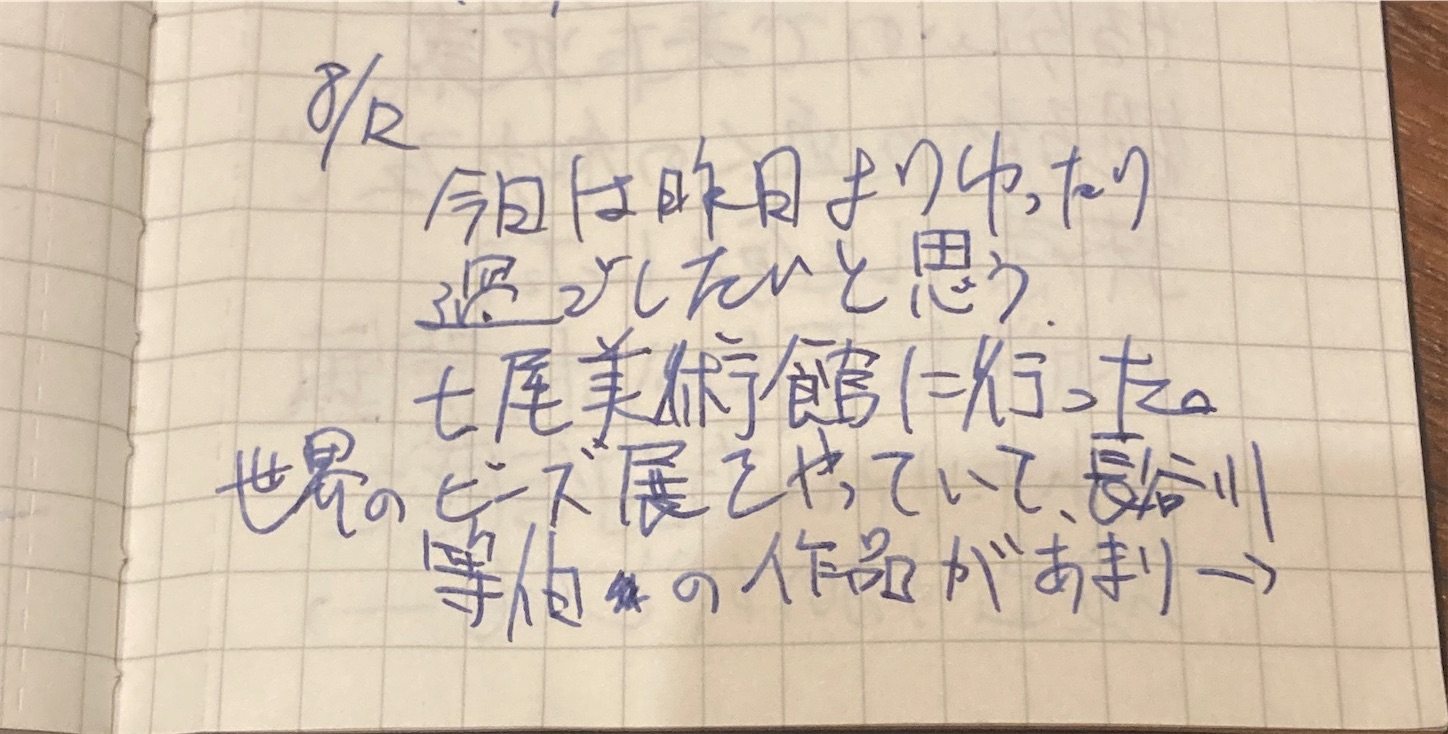 8/12
今日は昨日よりゆったり
過ごしたいと思う.
七尾美術館に行った。
世界のビーズ展をやっていて、長谷川
等伯の作品があまり→